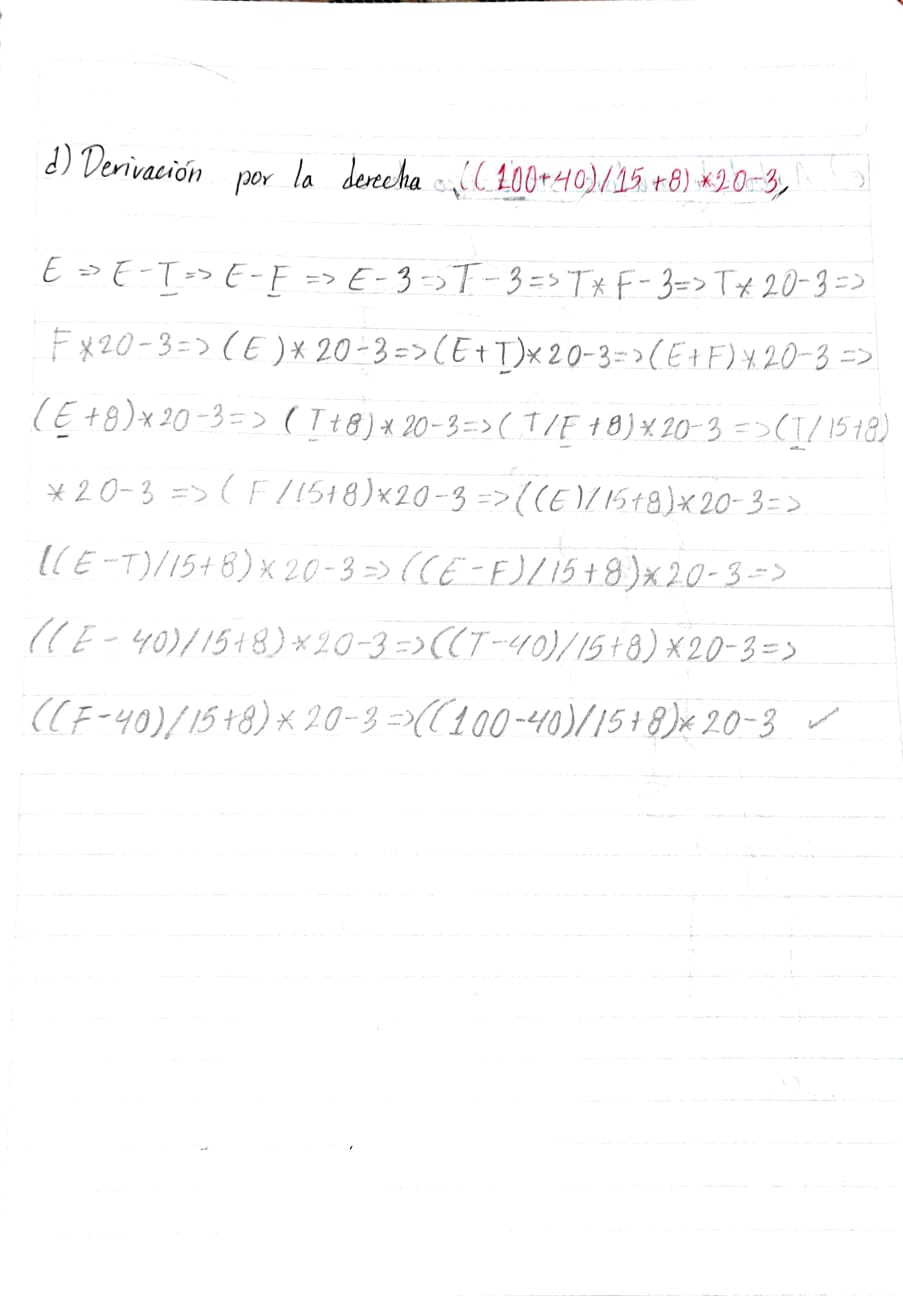 d) Derivación por la derecha ((100+40)/15+8)*20-3,
E => E-T => E-F => E-3 => T-3 => T*F-3 => T*20-3 =>
F*20-3 => (E)*20-3 => (E+T)*20-3 => (E+F)*20-3 =>
(E+8)*20-3 => (T+8)*20-3 => (T/F+8)*20-3 => (T/15+8)
*20-3 => (F/15+8)*20-3 => ((E)/15+8)*20-3 =>
((E-T)/15+8)*20-3 => ((E-F)/15+8)*20-3 =>
((E-40)/15+8)*20-3 => ((T-40)/15+8)*20-3 =>
((F-40)/15+8)*20-3 => ((100-40)/15+8)*20-3 ✓